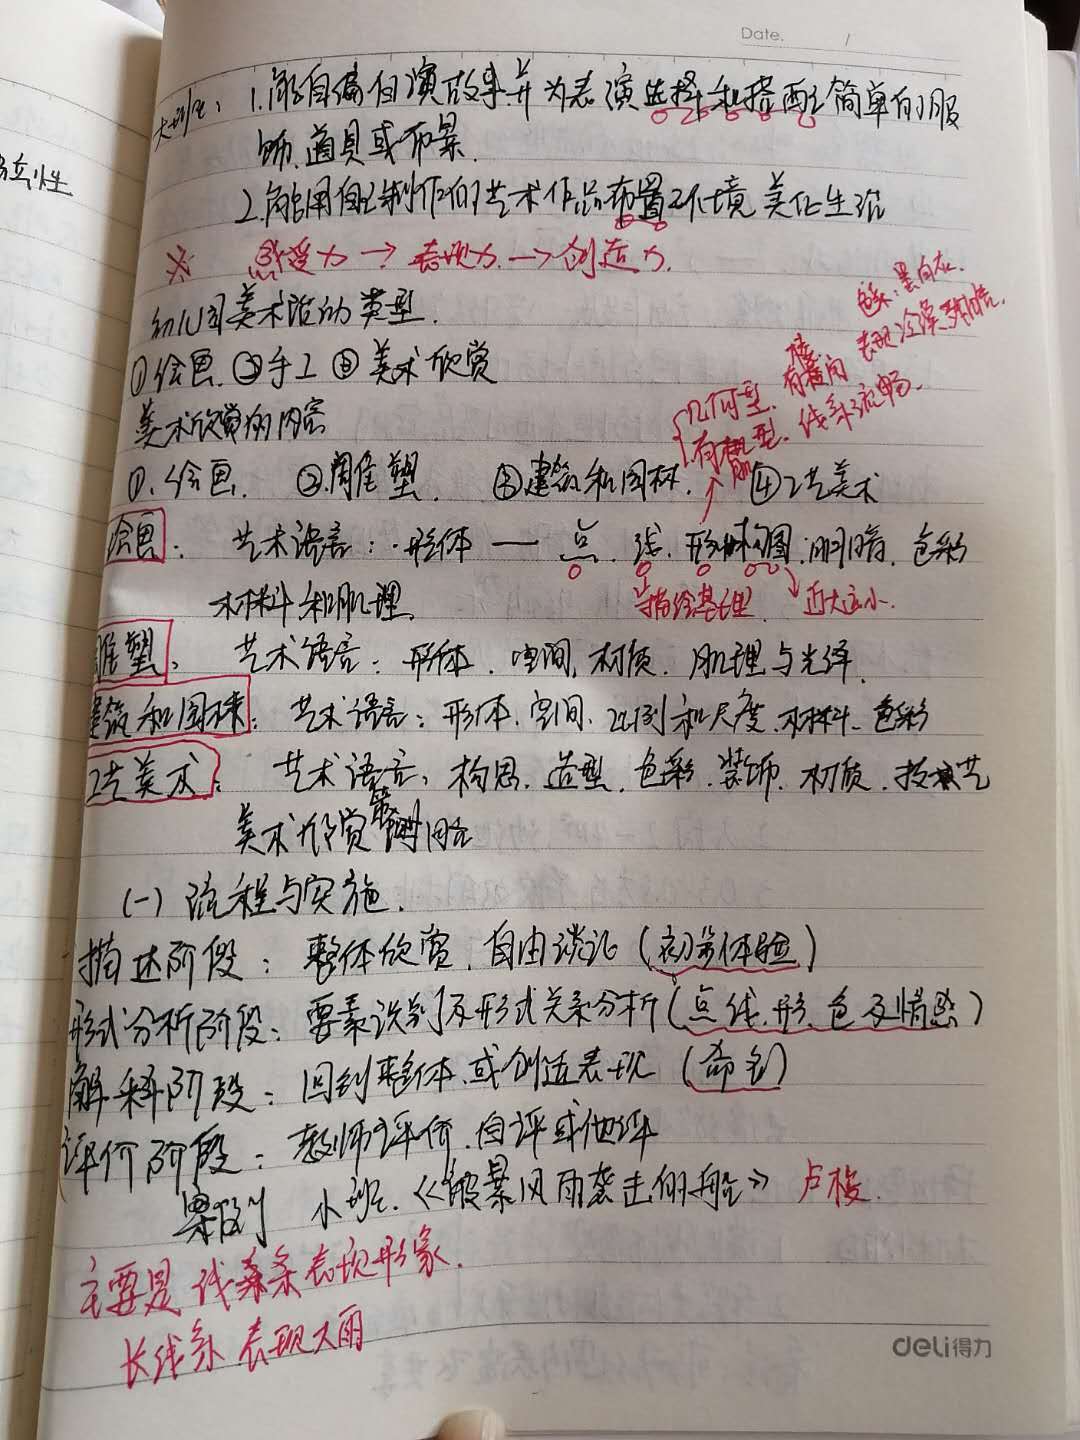 Date. /
大班: 1.能自编自演故事并为表演选择和搭配简单的服
饰、道具或布景.
2.能用自己制作的艺术作品布置环境 美化生活
※ 感受力→表现力→创造力.
幼儿园美术活动类型.
①绘画.②手工③美术欣赏
色系:黑白灰.
表现冷漠、残酷.
几何型.
有机型.线条流畅.
美术欣赏的内容
①.绘画. ②雕塑. ③建筑和园林. ④工艺美术
绘画: 艺术语言:形体——点.线.形.构图.明暗.色彩
材料和肌理.
近大远小.
雕塑: 艺术语言:形体.空间.材质.肌理与光泽.
建筑和园林: 艺术语言:形体.空间.比例和尺度.材料.色彩
工艺美术: 艺术语言:构思.造型.色彩.装饰.材质.技艺
美术欣赏
(一)流程与实施.
描述阶段: 整体欣赏.自由谈论(初步体验)
形式分析阶段: 要素识别及形式关系分析(点.线.形.色及情感)
解释阶段: 回到整体.或创造表现(命名)
评价阶段: 教师评价.自评或他评
案例 小班.《被暴风雨袭击的船》 卢梭.
主要是线条表现形象.
长线条 表现大雨
deli得力